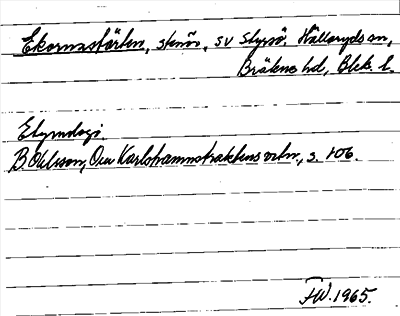 Ekornastärten, stenör, sv Styrsö, Hällaryds sn,
Bräkne hd, Blek. l.
Etymologi.
B. Ohlsson, Om Karlshamnstraktens ortn., s. 106.
FW. 1965.